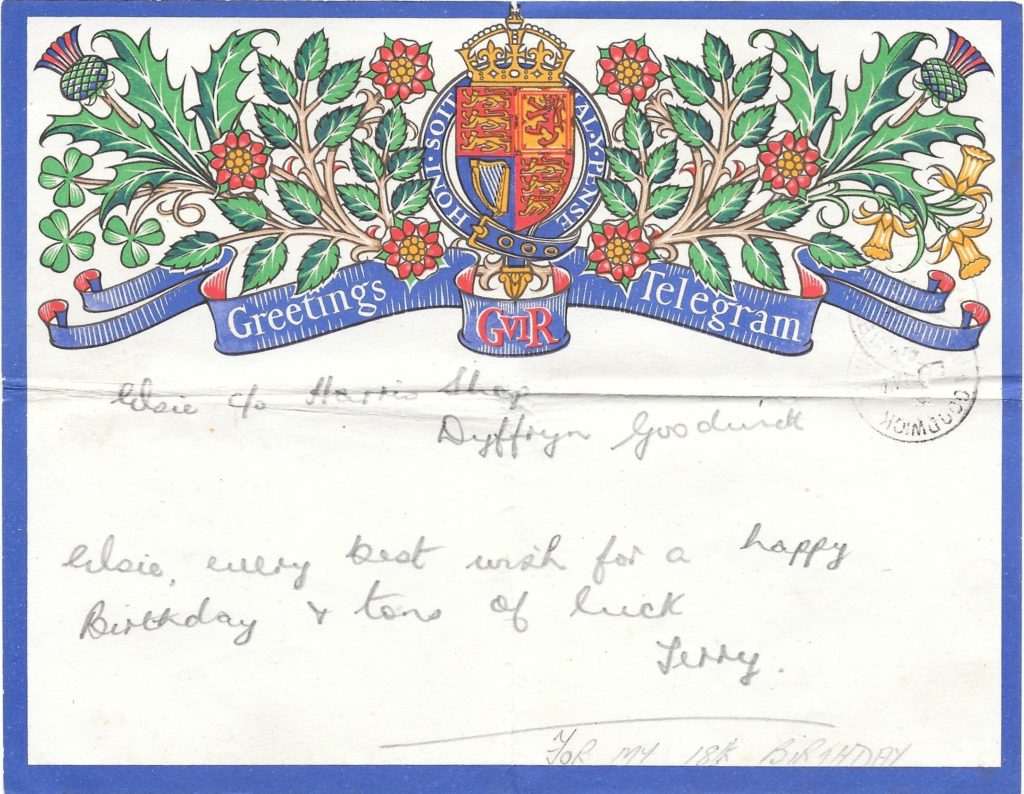 HONI·SOIT
MAL·Y·PENSE
Greetings
Telegram
GVIR
GOODWICK
Elsie c/o Harris Shop
Dyffryn Goodwick
Elsie, every best wish for a happy
Birthday & tons of luck
Terry.
FOR MY 18th BIRTHDAY